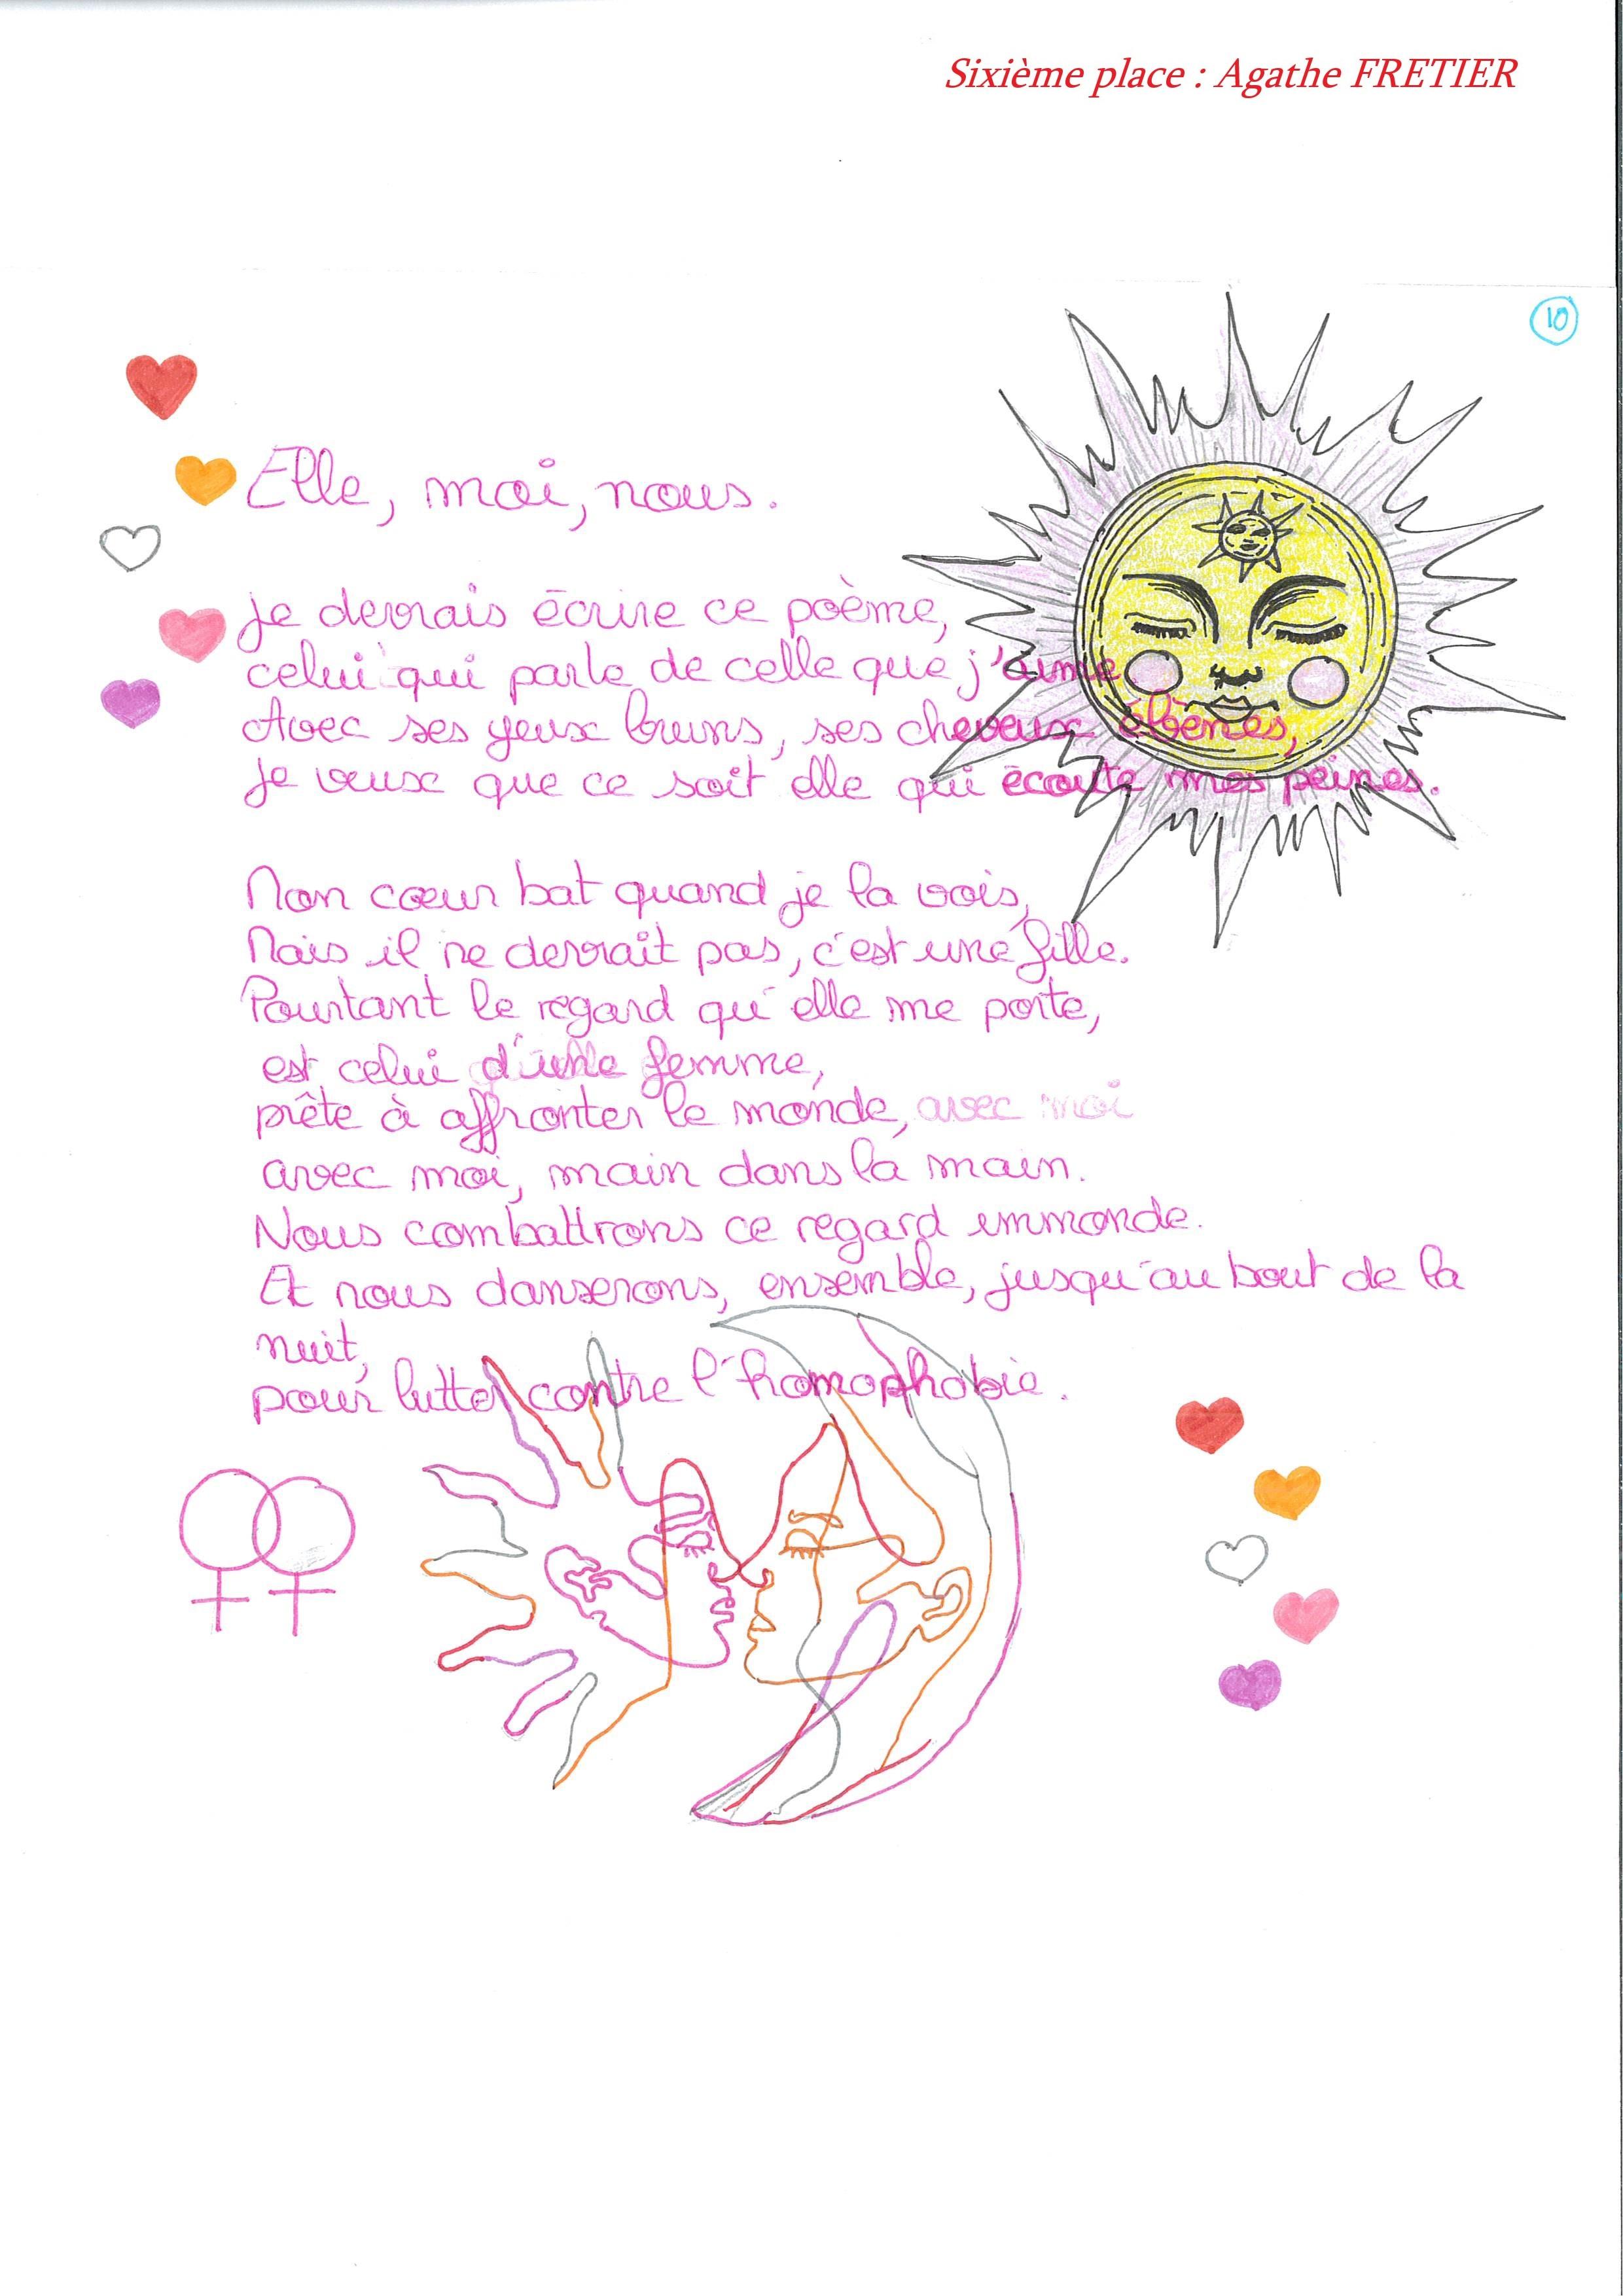 Sixième place : Agathe FRETIER
10
Elle, moi, nous.
Je devrais écrire ce poème,
celui qui parle de celle que j'aime
Avec ses yeux bruns, ses cheveux ébènes,
Je veux que ce soit elle qui écoute mes peines.
Mon cœur bat quand je la vois,
Mais il ne devrait pas, c'est une fille.
Pourtant le regard qu'elle me porte,
est celui d'une femme,
prête à affronter le monde, avec moi
avec moi, main dans la main.
Nous combattrons ce regard immonde.
Et nous danserons, ensemble, jusqu'au bout de la
nuit,
pour lutter contre l'homophobie.